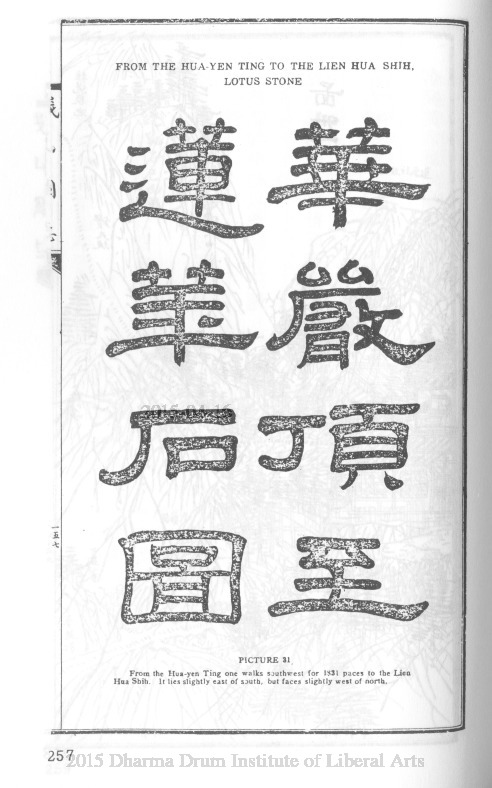 FROM THE HUA-YEN TING TO THE LIEN HUA SHIH,
LOTUS STONE
華嚴頂至
蓮華石圖
2015-04-16
一五七
PICTURE 31
From the Hua-yen Ting one walks southwest for 1831 paces to the Lien
Hua Shih. It lies slightly east of south, but faces slightly west of north.
257
2015 Dharma Drum Institute of Liberal Arts